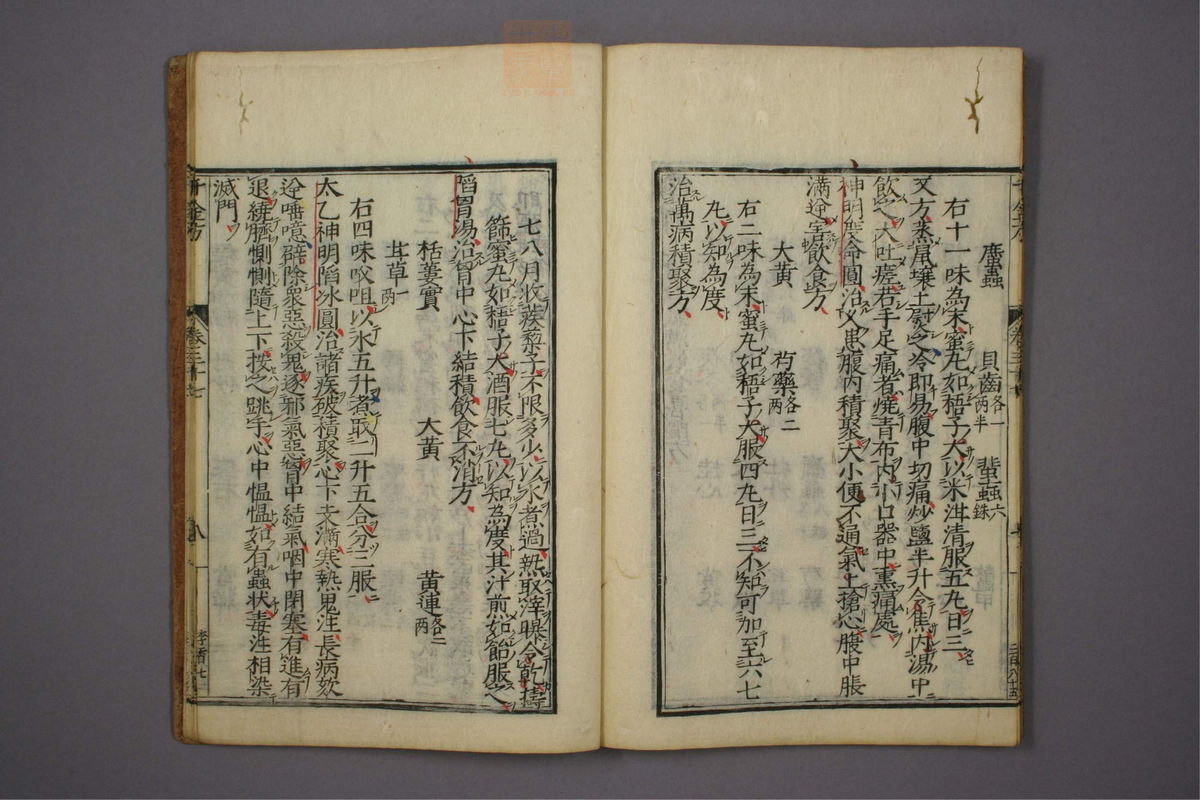 䗪蟲 貝齒各一兩半 蜚蟲六銖
右十一味為末蜜丸如梧子大以米泔清服五丸日三
又方蒸鼠壤土熨之冷即易腹中切痛炒鹽半升令焦内湯中
飲之大吐瘥若手足痛者燒青布内小口器中熏痛處
神明度命圓治久患腹内積聚大小便不通氣上搶心腹中脹
滿逆害飲食方
大黃 芍藥各二兩
右二味為末蜜丸如梧子大服四丸日三不知可加至六七
丸以知為度
治萬病積聚方
七八月收蒺梨子不限多少以水煮過熟取滓曝令乾擣
篩蜜丸如梧子大酒服七丸以知為度其汁煎如飴服之
陷胷湯治胷中心下結積飲食不消方
栝蔞實 大黃 黃連各二兩
甘草一兩
右四味㕮咀以水五升煮取一升五合分三服
太乙神明陷冰圓治諸疾破積聚心下支滿寒熱鬼注長病欬
逆唾噫辟除眾惡殺鬼逐邪氣惡胷中結氣咽中閉塞有進有
退繞臍惻惻隨上下按之跳手心中愠愠如有蟲狀毒注相染
滅門
千金方 卷三十七 八